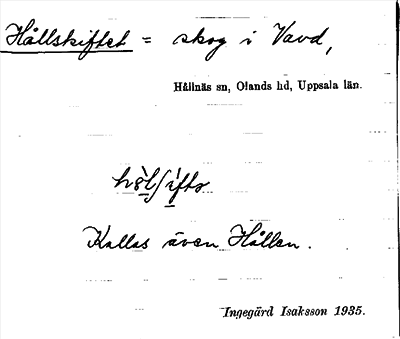 Hållskiftet = skog i Vavd,
Hållnäs sn, Olands hd, Uppsala län.
Kallas även Hållen.
Ingegärd Isaksson 1935.